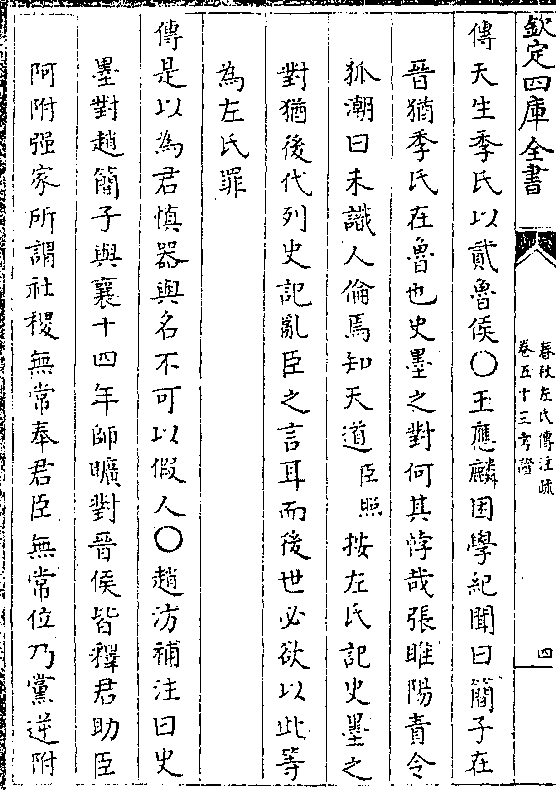 欽定四庫全書
春秋左氏傳注疏
卷五十三考證
四
傳天生季氏以貳魯侯〇王應麟困學紀聞曰簡子在
晉猶季氏在魯也史墨之對何其悖哉張睢陽責令
狐潮曰未識人倫焉知天道臣照按左氏記史墨之
對猶後代列史記亂臣之言耳而後世必欲以此等
為左氏罪
傳是以為君慎器與名不可以假人〇趙汸補注曰史
墨對趙簡子與襄十四年師曠對晉侯皆釋君助臣
阿附强家所謂社稷無常奉君臣無常位乃黨逆附